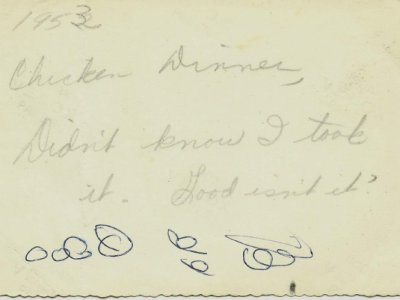 1953
Chicken Dinner,
Didn't know I took
it. Good isn't it'